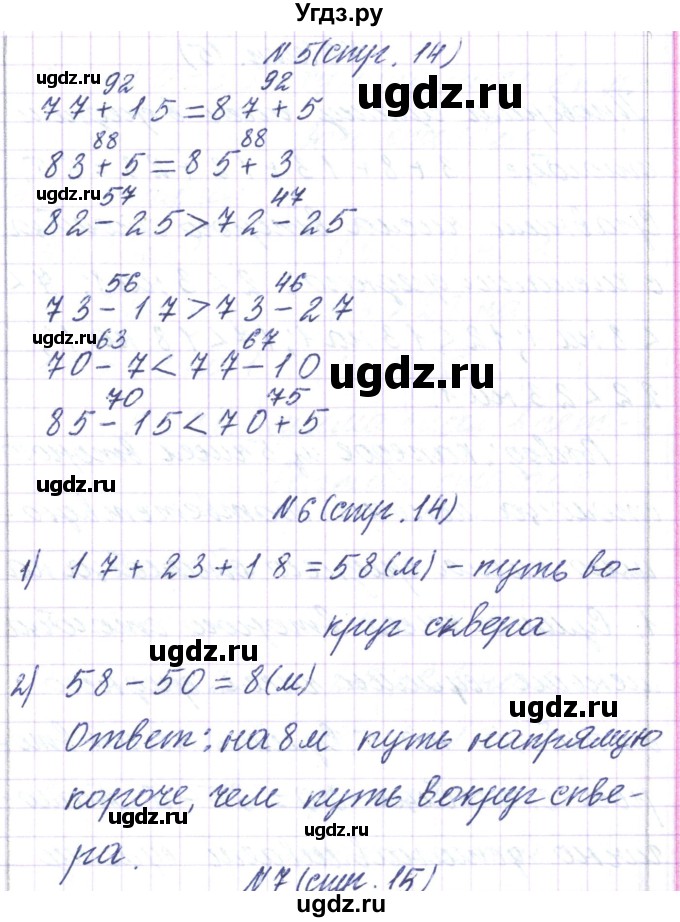 Угдз.ру
N 5(стр. 14)
ugdz.ru
ugdz.ru
92 92
77+15=87+5
88 88
83+5=85+3
ugdz.ru
57 47
82-25>72-25
56 46
73-17>73-27
ugdz.ru
ugdz.ru
63 67
70-7<77-10
70 75
85-15<70+5
ugdz.ru
N6(стр. 14)
1) 17+23+18=58(м)-путь во-
ugdz.ru
круг сквера
ugdz.ru
ugdz.ru
2) 58-50=8(м)
Ответ: на 8м путь напрямую
короче, чем путь вокруг скве-
ugdz.ru
ugdz.ru
ра.
N7(стр. 15)
ugdz.ru